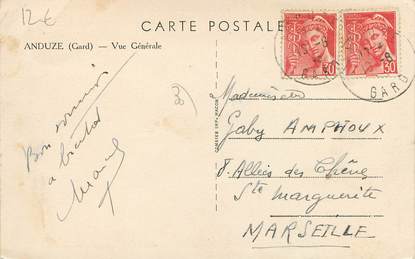 12 €
CARTE POSTALE
ANDUZE (Gard) — Vue Générale
30
30
GARD
Bon souvenir
a bientot
Mademoiselle
Gaby AMPHOUX
8. Allées des Chêne
Ste Marguerite
MARSEILLE